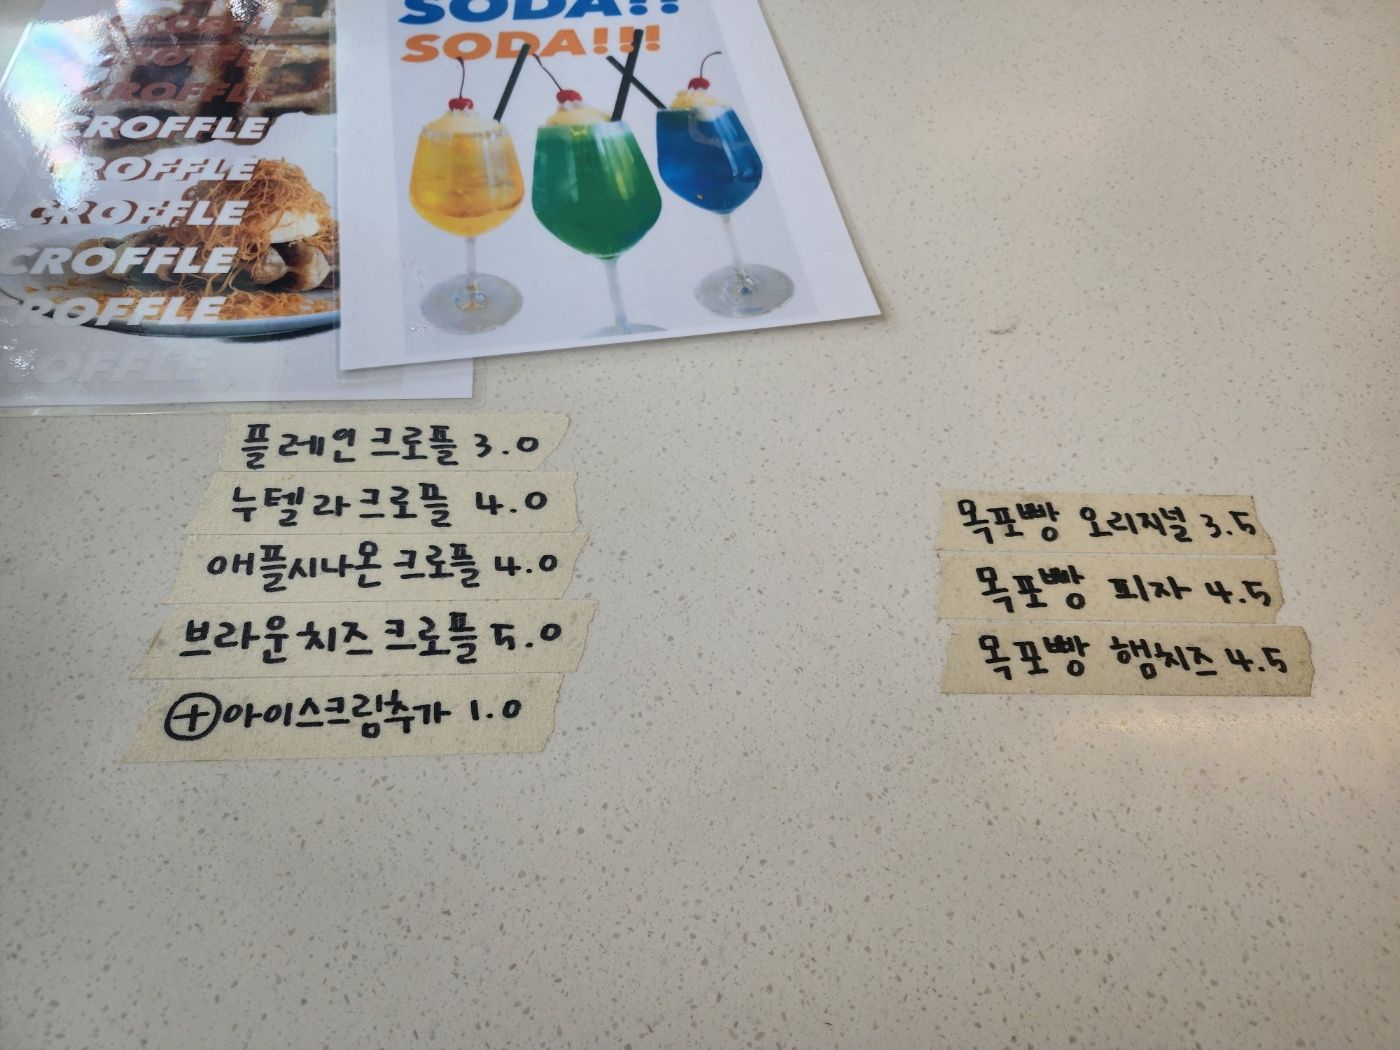 CROFFLE
CROFFLE
CROFFLE
CROFFLE
CROFFLE
CROFFLE
CROFFLE
CROFFLE
SODA!!
SODA!!!
플레인 크로플 3.0
누텔라 크로플 4.0
애플시나몬 크로플 4.0
브라운치즈 크로플 5.0
+아이스크림추가 1.0
목포빵 오리지널 3.5
목포빵 피자 4.5
목포빵 햄치즈 4.5